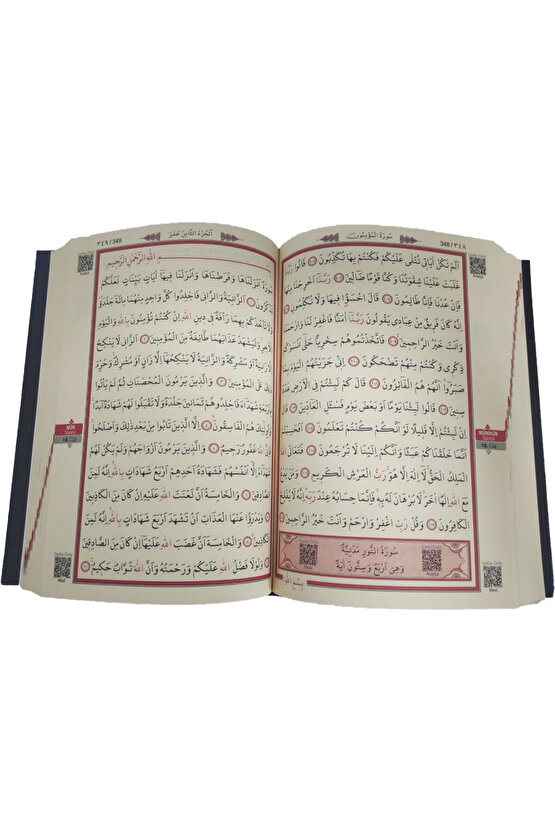 سُورَةُ الْمُؤْمِنُونَ
348 / ٣٤٨
اَلَمْ تَكُنْ اٰيَاتِي تُتْلٰى عَلَيْكُمْ فَكُنْتُمْ بِهَا تُكَذِّبُونَ ﴿١٠٥﴾ قَالُوا رَبَّنَا
غَلَبَتْ عَلَيْنَا شِقْوَتُنَا وَكُنَّا قَوْمًا ضَٓالِّينَ ﴿١٠٦﴾ رَبَّنَٓا اَخْرِجْنَا مِنْهَا
فَاِنْ عُدْنَا فَاِنَّا ظَالِمُونَ ﴿١٠٧﴾ قَالَ اخْسَؤُا فِيهَا وَلَا تُكَلِّمُونِ ﴿١٠٨﴾
اِنَّهُ كَانَ فَرِيقٌ مِنْ عِبَادِي يَقُولُونَ رَبَّنَٓا اٰمَنَّا فَاغْفِرْ لَنَا وَارْحَمْنَا
وَاَنْتَ خَيْرُ الرَّاحِمِينَ ﴿١٠٩﴾ فَاتَّخَذْتُمُوهُمْ سِخْرِيًّا حَتّٰٓى اَنْسَوْكُمْ
ذِكْرِي وَكُنْتُمْ مِنْهُمْ تَضْحَكُونَ ﴿١١٠﴾ اِنِّي جَزَيْتُهُمُ الْيَوْمَ بِمَا
صَبَرُٓوا اَنَّهُمْ هُمُ الْفَٓائِزُونَ ﴿١١١﴾ قَالَ كَمْ لَبِثْتُمْ فِي الْاَرْضِ عَدَدَ
سِنِينَ ﴿١١٢﴾ قَالُوا لَبِثْنَا يَوْمًا اَوْ بَعْضَ يَوْمٍ فَسْـَٔلِ الْعَٓادِّينَ ﴿١١٣﴾ قَالَ
اِنْ لَبِثْتُمْ اِلَّا قَلِيلًا لَوْ اَنَّكُمْ كُنْتُمْ تَعْلَمُونَ ﴿١١٤﴾ اَفَحَسِبْتُمْ
اَنَّمَا خَلَقْنَاكُمْ عَبَثًا وَاَنَّكُمْ اِلَيْنَا لَا تُرْجَعُونَ ﴿١١٥﴾ فَتَعَالَى اللّٰهُ
الْمَلِكُ الْحَقُّ لَٓا اِلٰهَ اِلَّا هُوَ رَبُّ الْعَرْشِ الْكَرِيمِ ﴿١١٦﴾ وَمَنْ يَدْعُ
مَعَ اللّٰهِ اِلٰهًا اٰخَرَ لَا بُرْهَانَ لَهُ بِهِ فَاِنَّمَا حِسَابُهُ عِنْدَ رَبِّهِ اِنَّهُ لَا يُفْلِحُ
الْكَافِرُونَ ﴿١١٧﴾ وَقُلْ رَبِّ اغْفِرْ وَارْحَمْ وَاَنْتَ خَيْرُ الرَّاحِمِينَ ﴿١١٨﴾
سُورَةُ النُّورِ مَدَنِيَّةٌ
وَهِيَ اَرْبَعٌ وَسِتُّونَ اٰيَةً
بِسْمِ اللّٰهِ
MÜMİNÛN
Sûresi
18. Cüz
Meal
اَلْجُزْءُ الثَّامِنُ عَشَرَ
٣٤٩ / 349
بِسْمِ اللّٰهِ الرَّحْمٰنِ الرَّحِيمِ
سُورَةٌ اَنْزَلْنَاهَا وَفَرَضْنَاهَا وَاَنْزَلْنَا فِيهَٓا اٰيَاتٍ بَيِّنَاتٍ لَعَلَّكُمْ
تَذَكَّرُونَ ﴿١﴾ اَلزَّانِيَةُ وَالزَّانِي فَاجْلِدُوا كُلَّ وَاحِدٍ مِنْهُمَا مِائَةَ جَلْدَةٍ
وَلَا تَأْخُذْكُمْ بِهِمَا رَأْفَةٌ فِي دِينِ اللّٰهِ اِنْ كُنْتُمْ تُؤْمِنُونَ بِاللّٰهِ وَالْيَوْمِ
الْاٰخِرِ وَلْيَشْهَدْ عَذَابَهُمَا طَٓائِفَةٌ مِنَ الْمُؤْمِنِينَ ﴿٢﴾ اَلزَّانِي لَا يَنْكِحُ
اِلَّا زَانِيَةً اَوْ مُشْرِكَةً وَالزَّانِيَةُ لَا يَنْكِحُهَٓا اِلَّا زَانٍ اَوْ مُشْرِكٌ وَحُرِّمَ
ذٰلِكَ عَلَى الْمُؤْمِنِينَ ﴿٣﴾ وَالَّذِينَ يَرْمُونَ الْمُحْصَنَاتِ ثُمَّ لَمْ يَأْتُوا
بِاَرْبَعَةِ شُهَدَٓاءَ فَاجْلِدُوهُمْ ثَمَانِينَ جَلْدَةً وَلَا تَقْبَلُوا لَهُمْ شَهَادَةً اَبَدًا
وَاُو۬لٰٓئِكَ هُمُ الْفَاسِقُونَ ﴿٤﴾ اِلَّا الَّذِينَ تَابُوا مِنْ بَعْدِ ذٰلِكَ وَاَصْلَحُوا
فَاِنَّ اللّٰهَ غَفُورٌ رَحِيمٌ ﴿٥﴾ وَالَّذِينَ يَرْمُونَ اَزْوَاجَهُمْ وَلَمْ يَكُنْ لَهُمْ
شُهَدَٓاءُ اِلَّٓا اَنْفُسُهُمْ فَشَهَادَةُ اَحَدِهِمْ اَرْبَعُ شَهَادَاتٍ بِاللّٰهِ اِنَّهُ لَمِنَ
الصَّادِقِينَ ﴿٦﴾ وَالْخَامِسَةُ اَنَّ لَعْنَتَ اللّٰهِ عَلَيْهِ اِنْ كَانَ مِنَ الْكَاذِبِينَ
﴿٧﴾ وَيَدْرَؤُا عَنْهَا الْعَذَابَ اَنْ تَشْهَدَ اَرْبَعَ شَهَادَاتٍ بِاللّٰهِ اِنَّهُ لَمِنَ
الْكَاذِبِينَ ﴿٨﴾ وَالْخَامِسَةَ اَنَّ غَضَبَ اللّٰهِ عَلَيْهَٓا اِنْ كَانَ مِنَ الصَّادِقِينَ
﴿٩﴾ وَلَوْلَا فَضْلُ اللّٰهِ عَلَيْكُمْ وَرَحْمَتُهُ وَاَنَّ اللّٰهَ تَوَّابٌ حَكِيمٌ ﴿١٠﴾
NÛR
Sûresi
18. Cüz
Meal